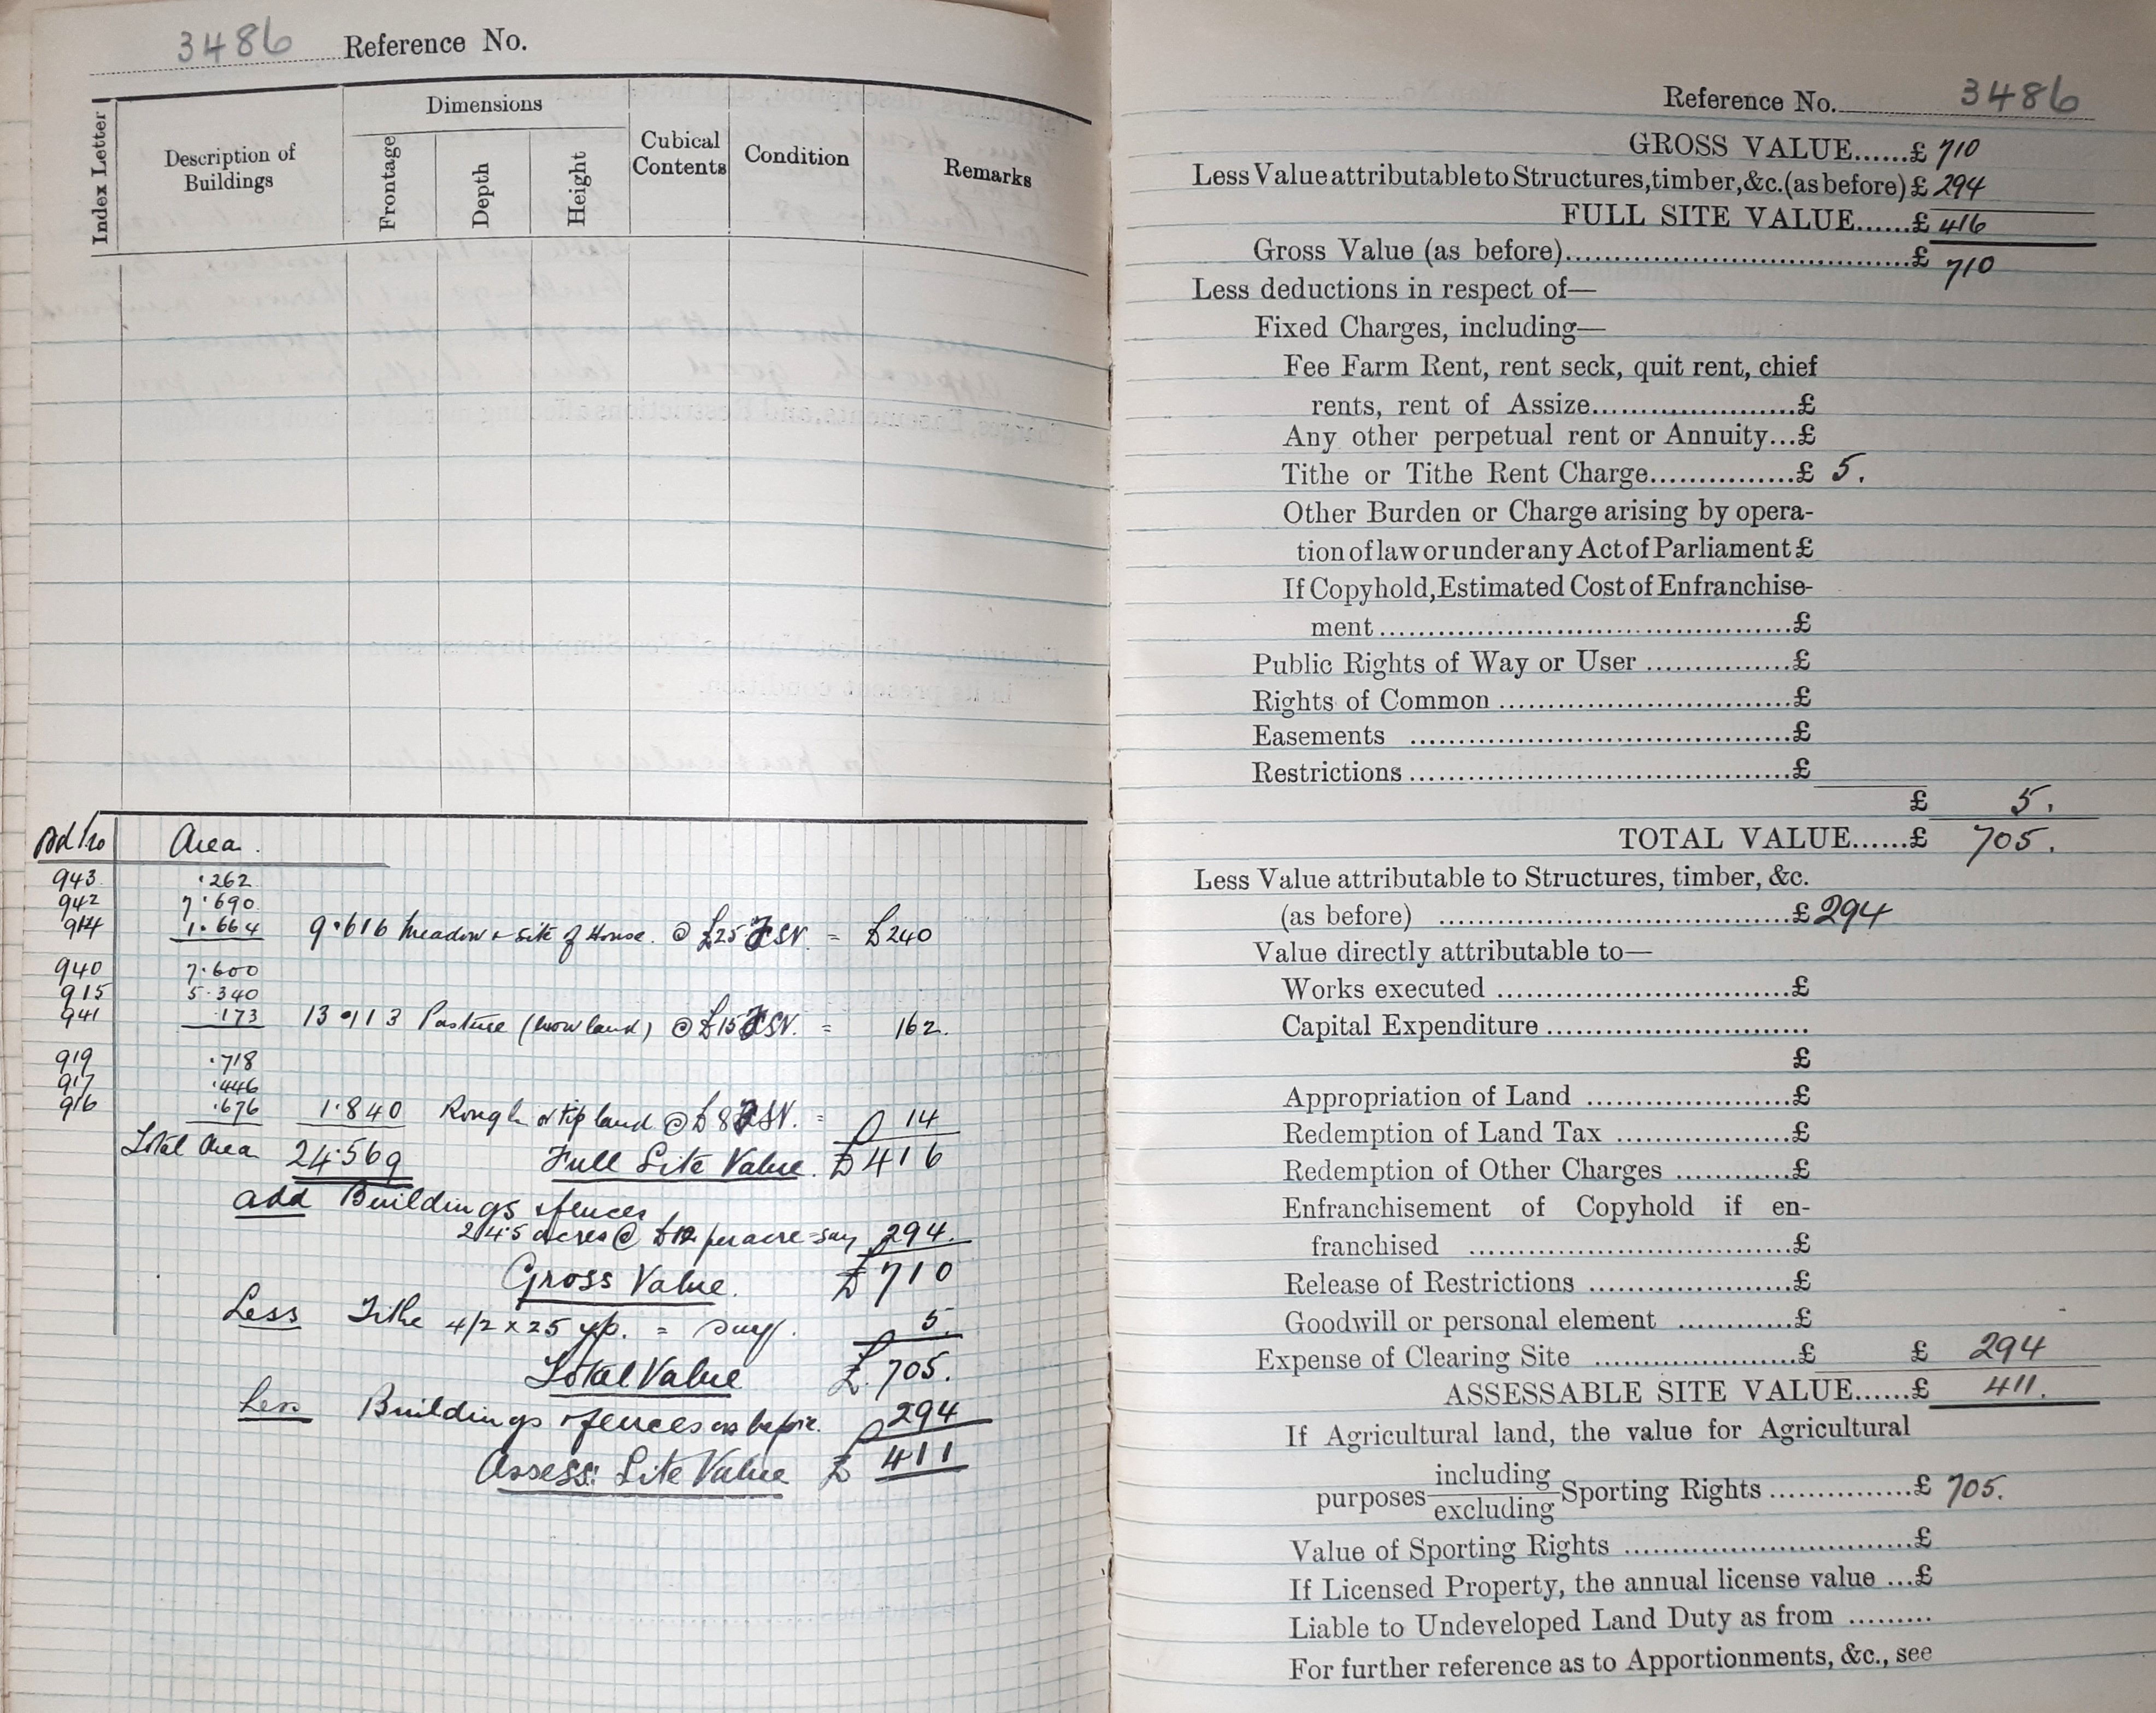 3486 Reference No.
Index Letter
Description of Buildings
Dimensions
Frontage
Depth
Height
Cubical Contents
Condition
Remarks
Area.
943 .262
942 7.690
914 1.664 9.616 Meadow & Site of House. @ £25 FSV. = £240
940 7.600
915 5.340
941 .173 13.113 Pasture (low land) @ £15 FSV. = 162.
919 .718
917 .446
916 .676 1.840 Rough or tip land @ £8 FSV. = 14
Total Area 24.569 Full Site Value. £416
add Buildings & fences
24.5 acres @ £12 per acre = say 294.
Gross Value. £710
Less Tithe 4/2 x 25 yp. = say. 5
Total Value £705.
Less Buildings & fences as before. 294
Assess: Site Value £411
Reference No. 3486
GROSS VALUE......£ 710
Less Value attributable to Structures, timber, &c. (as before) £ 294
FULL SITE VALUE......£ 416
Gross Value (as before)......£ 710
Less deductions in respect of—
Fixed Charges, including—
Fee Farm Rent, rent seck, quit rent, chief
rents, rent of Assize......£
Any other perpetual rent or Annuity...£
Tithe or Tithe Rent Charge......£ 5.
Other Burden or Charge arising by opera-
tion of law or under any Act of Parliament £
If Copyhold, Estimated Cost of Enfranchise-
ment......£
Public Rights of Way or User......£
Rights of Common......£
Easements......£
Restrictions......£
£ 5.
TOTAL VALUE......£ 705.
Less Value attributable to Structures, timber, &c.
(as before)......£ 294
Value directly attributable to—
Works executed......£
Capital Expenditure......
£
Appropriation of Land......£
Redemption of Land Tax......£
Redemption of Other Charges......£
Enfranchisement of Copyhold if en-
franchised......£
Release of Restrictions......£
Goodwill or personal element......£
Expense of Clearing Site......£ £ 294
ASSESSABLE SITE VALUE......£ 411.
If Agricultural land, the value for Agricultural
purposes including excluding Sporting Rights......£ 705.
Value of Sporting Rights......£
If Licensed Property, the annual license value ...£
Liable to Undeveloped Land Duty as from .........
For further reference as to Apportionments, &c., see